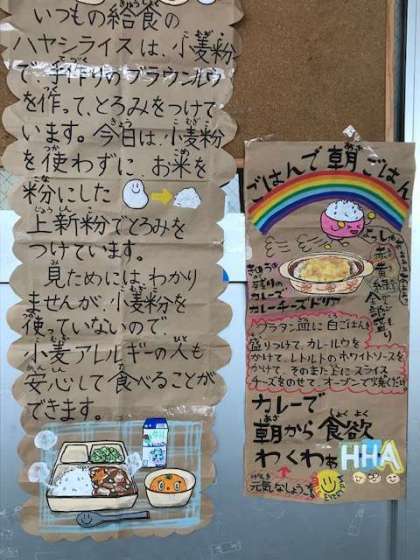 いつもの給食の
ハヤシライスは、小麦粉
で手作りのブラウンルウ
を作って、とろみをつけて
います。今日は、小麦粉
を使わずに、お米を
粉にした
上新粉でとろみを
つけています。
見ためには、わかり
ませんが、小麦粉を
使っていないので
小麦アレルギーの人も
安心して食べることが
できます。
ごはんで朝ごはん
きのうの
残りの
カレーで
カレーチーズドリア
グラタン皿に白ごはんを
盛りつけて、カレールウを
かけて、レトルトのホワイトソースを
かけて、そのまた上にスライス
チーズをのせて、オーブンで焼くだけ
カレーで
朝から食欲
わくわぁ
HHA
元気なしょうこ